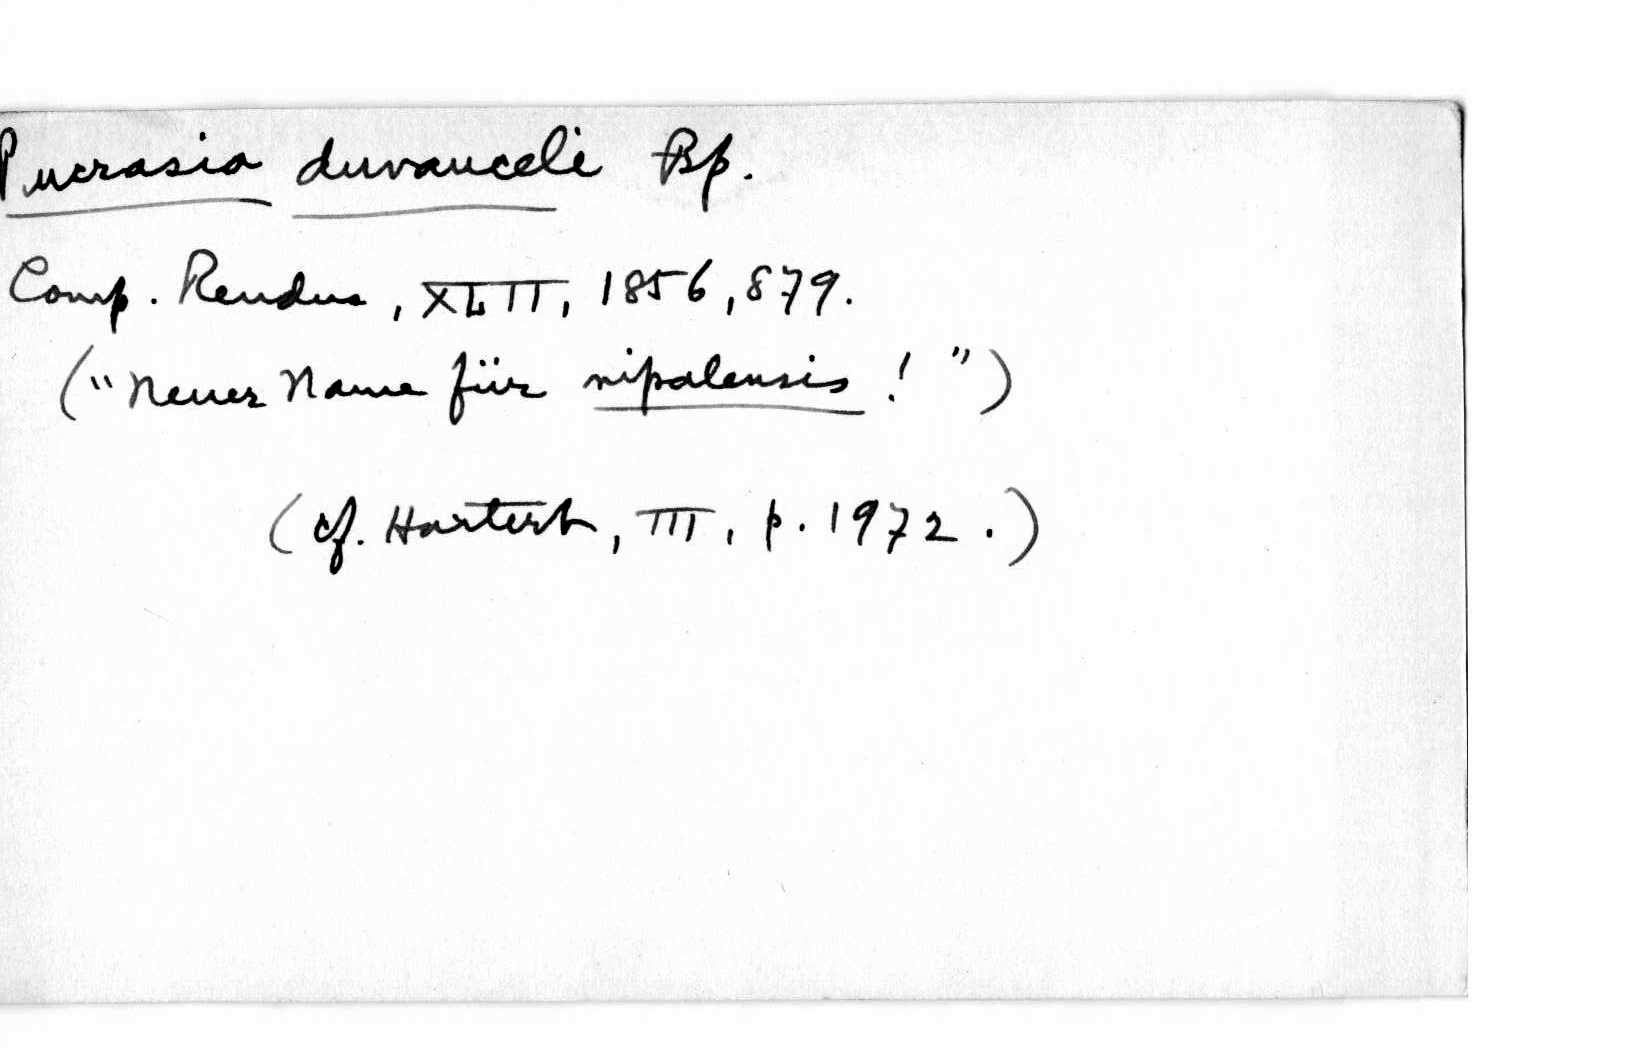 Pucrasia duvauceli Bp.
Comp. Rendus, XLII, 1856, 879.
("Neuer Name für nipalensis!")
(cf. Hartert, III, p. 1972.)